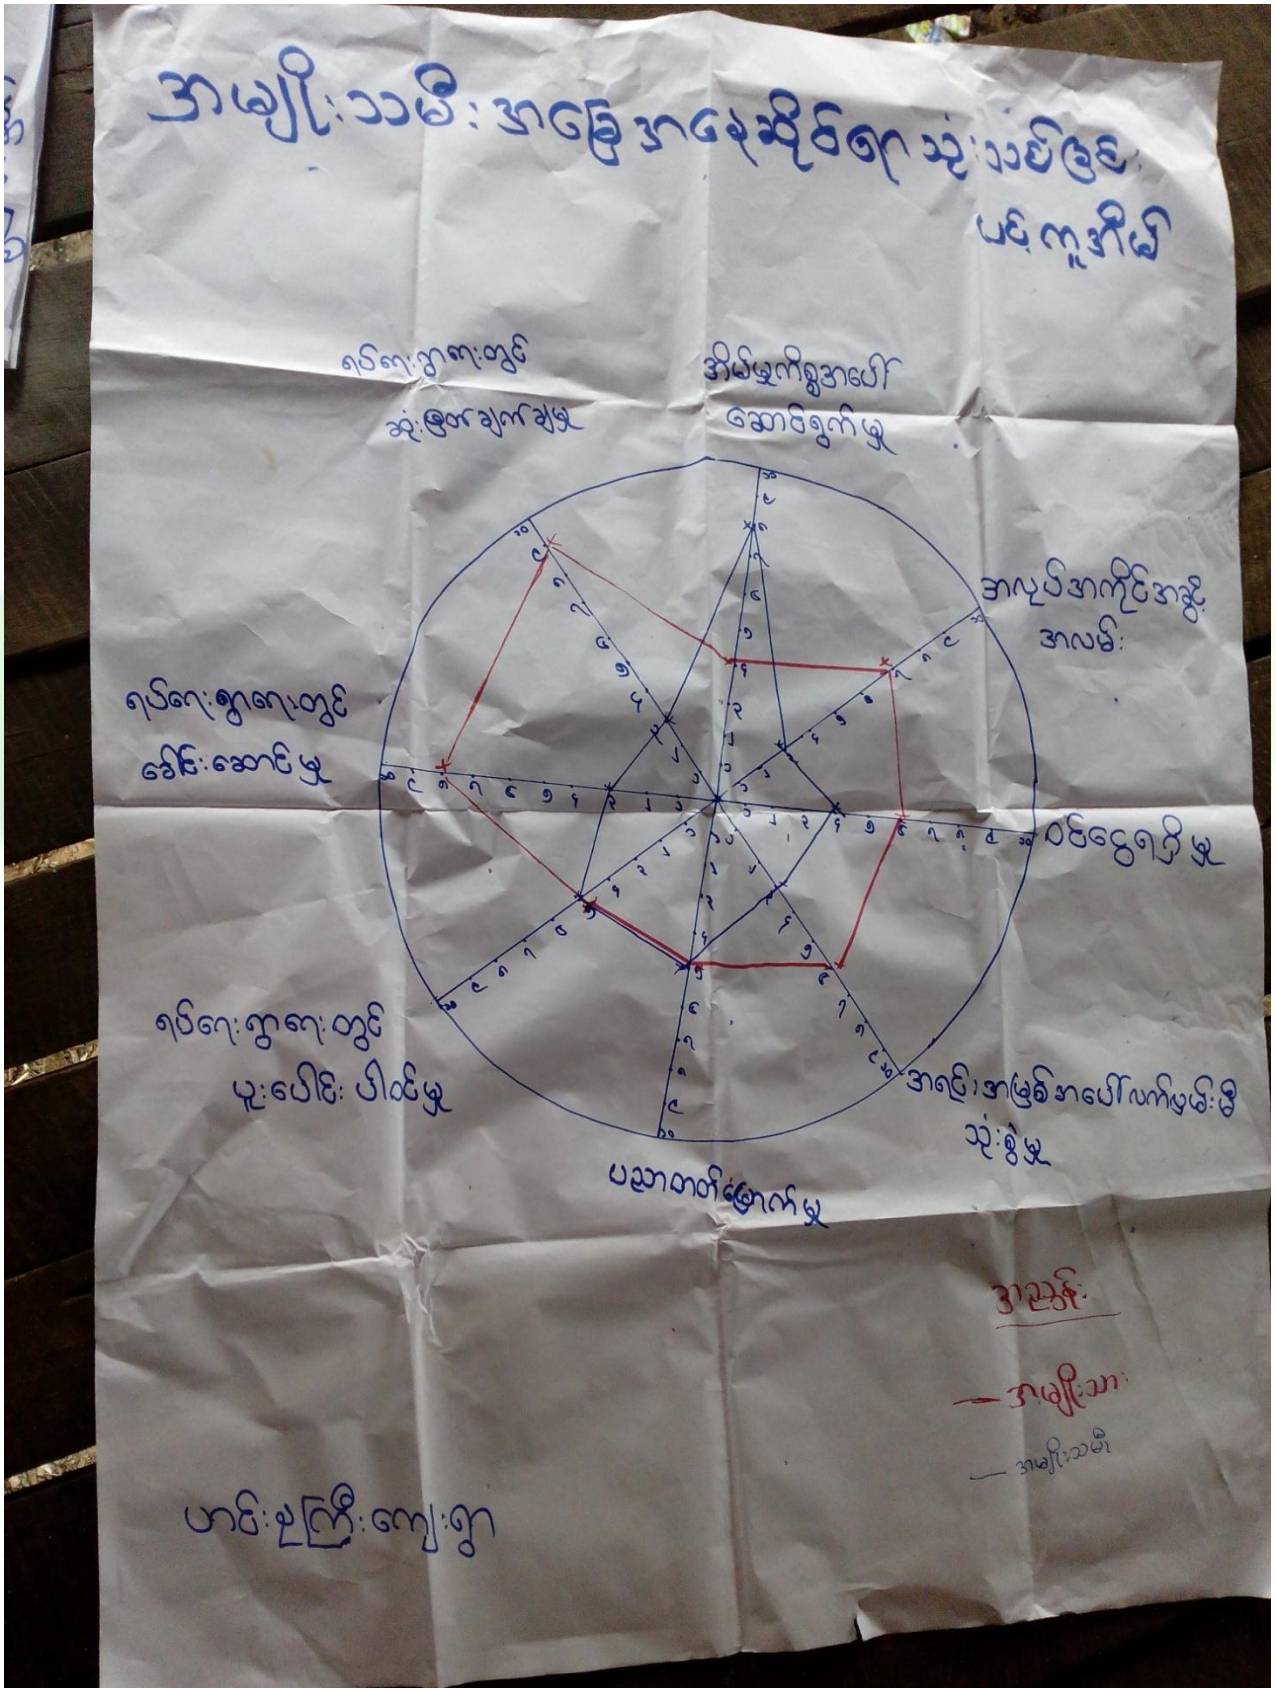 အမျိုးသမီး အခြေအနေဆိုင်ရာ သုံးသပ်ခြင်း
ပင့်ကူအိမ်
ရပ်ရေးရွာရေးတွင်
ဆုံးဖြတ်ချက်ချမှု
အိမ်မှုကိစ္စအပေါ်
ဆောင်ရွက်မှု
အလုပ်အကိုင်အခွင့်
အလမ်း
ရပ်ရေးရွာရေးတွင်
ခေါင်းဆောင်မှု
ဝင်ငွေရရှိမှု
ရပ်ရေးရွာရေးတွင်
ပူးပေါင်းပါဝင်မှု
အရင်းအမြစ်အပေါ်လက်လှမ်းမီ
သုံးစွဲမှု
ပညာတတ်မြောက်မှု
အညွှန်း
— အမျိုးသား
— အမျိုးသမီး
ဟင်းခုကြီးကျေးရွာ